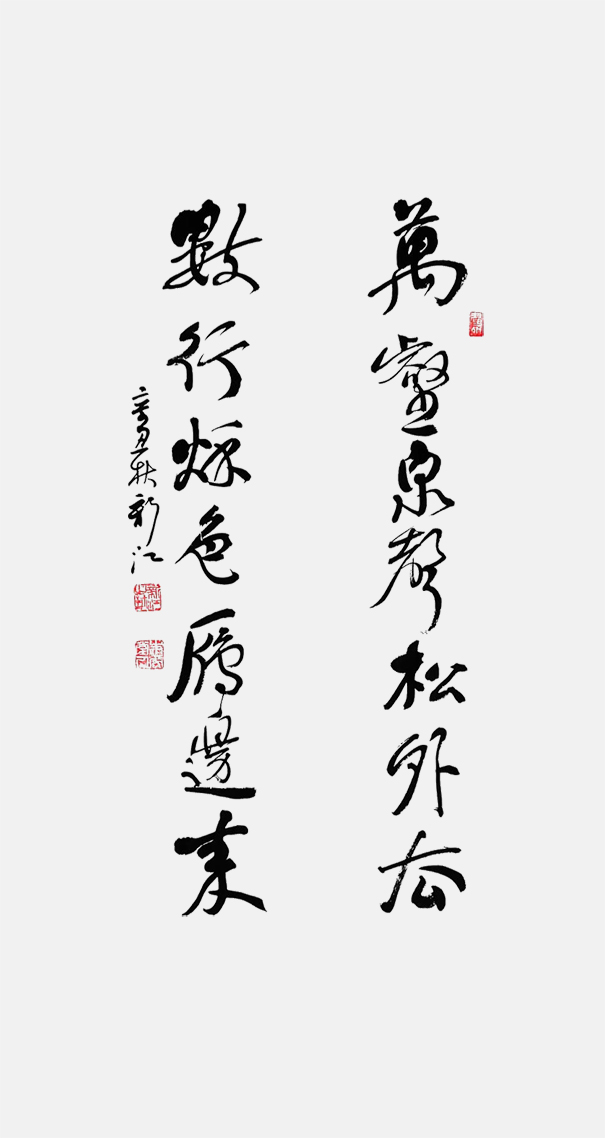 萬壑泉聲松外去
數行秋色雁邊來
辛丑秋新江